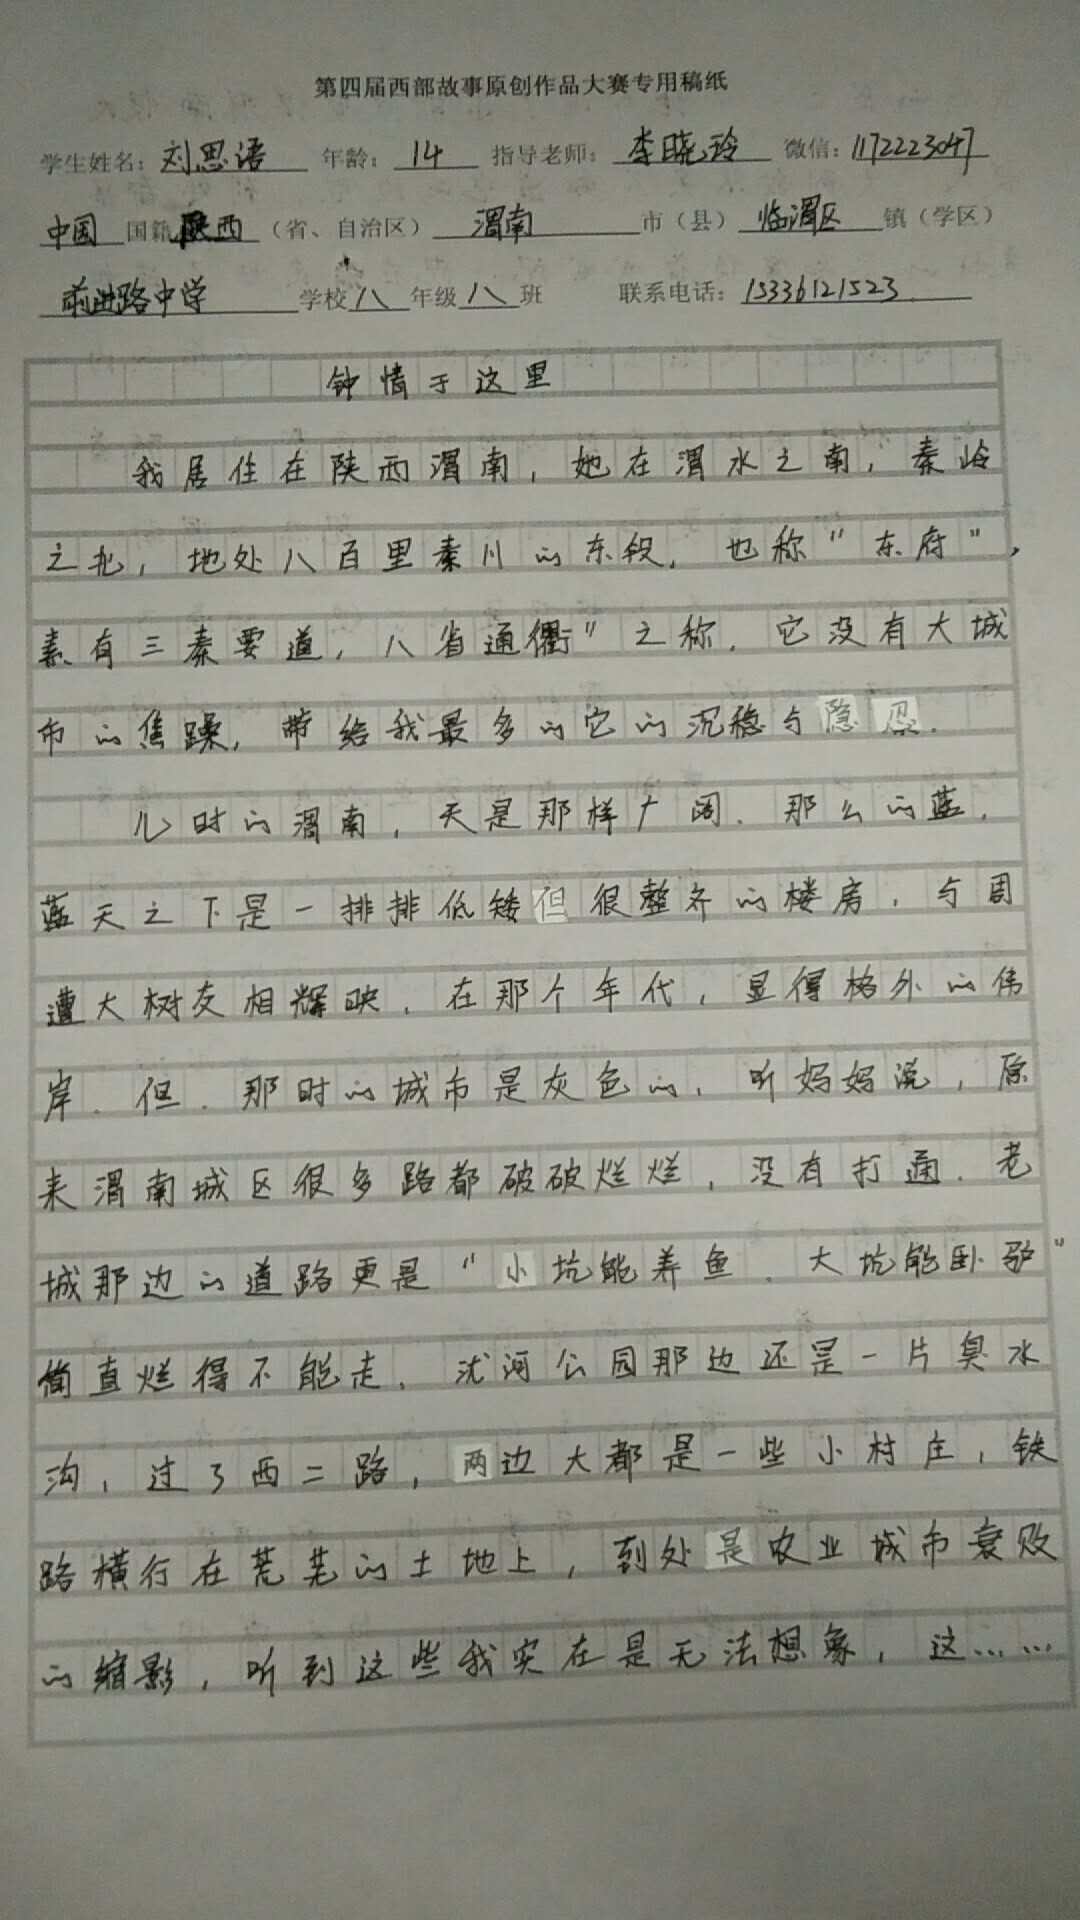 第四届西部故事原创作品大赛专用稿纸
学生姓名：刘思语 年龄：14 指导老师：李晓玲 微信：1172223047
中国 国籍 陕西（省、自治区） 渭南 市（县） 临渭区 镇（学区）
前进路中学 学校 八 年级 八 班 联系电话：15336121523
钟情于这里
我居住在陕西渭南，她在渭水之南，秦岭
之北，地处八百里秦川的东段，也称“东府”，
素有三秦要道，八省通衢”之称．它没有大城
市的焦躁，带给我最多的它的沉稳与隐忍．
儿时的渭南，天是那样广阔．那么的蓝．
蓝天之下是一排排低矮但很整齐的楼房，与周
遭大树友相辉映．在那个年代，显得格外的伟
岸．但．那时的城市是灰色的，听妈妈说，原
来渭南城区很多路都破破烂烂，没有打通．老
城那边的道路更是“小坑能养鱼．大坑能卧驴”
简直烂得不能走．沋河公园那边还是一片臭水
沟，过了西二路，两边大都是一些小村庄，铁
路横行在荒芜的土地上，到处是农业城市衰败
的缩影，听到这些我实在是无法想象，这……